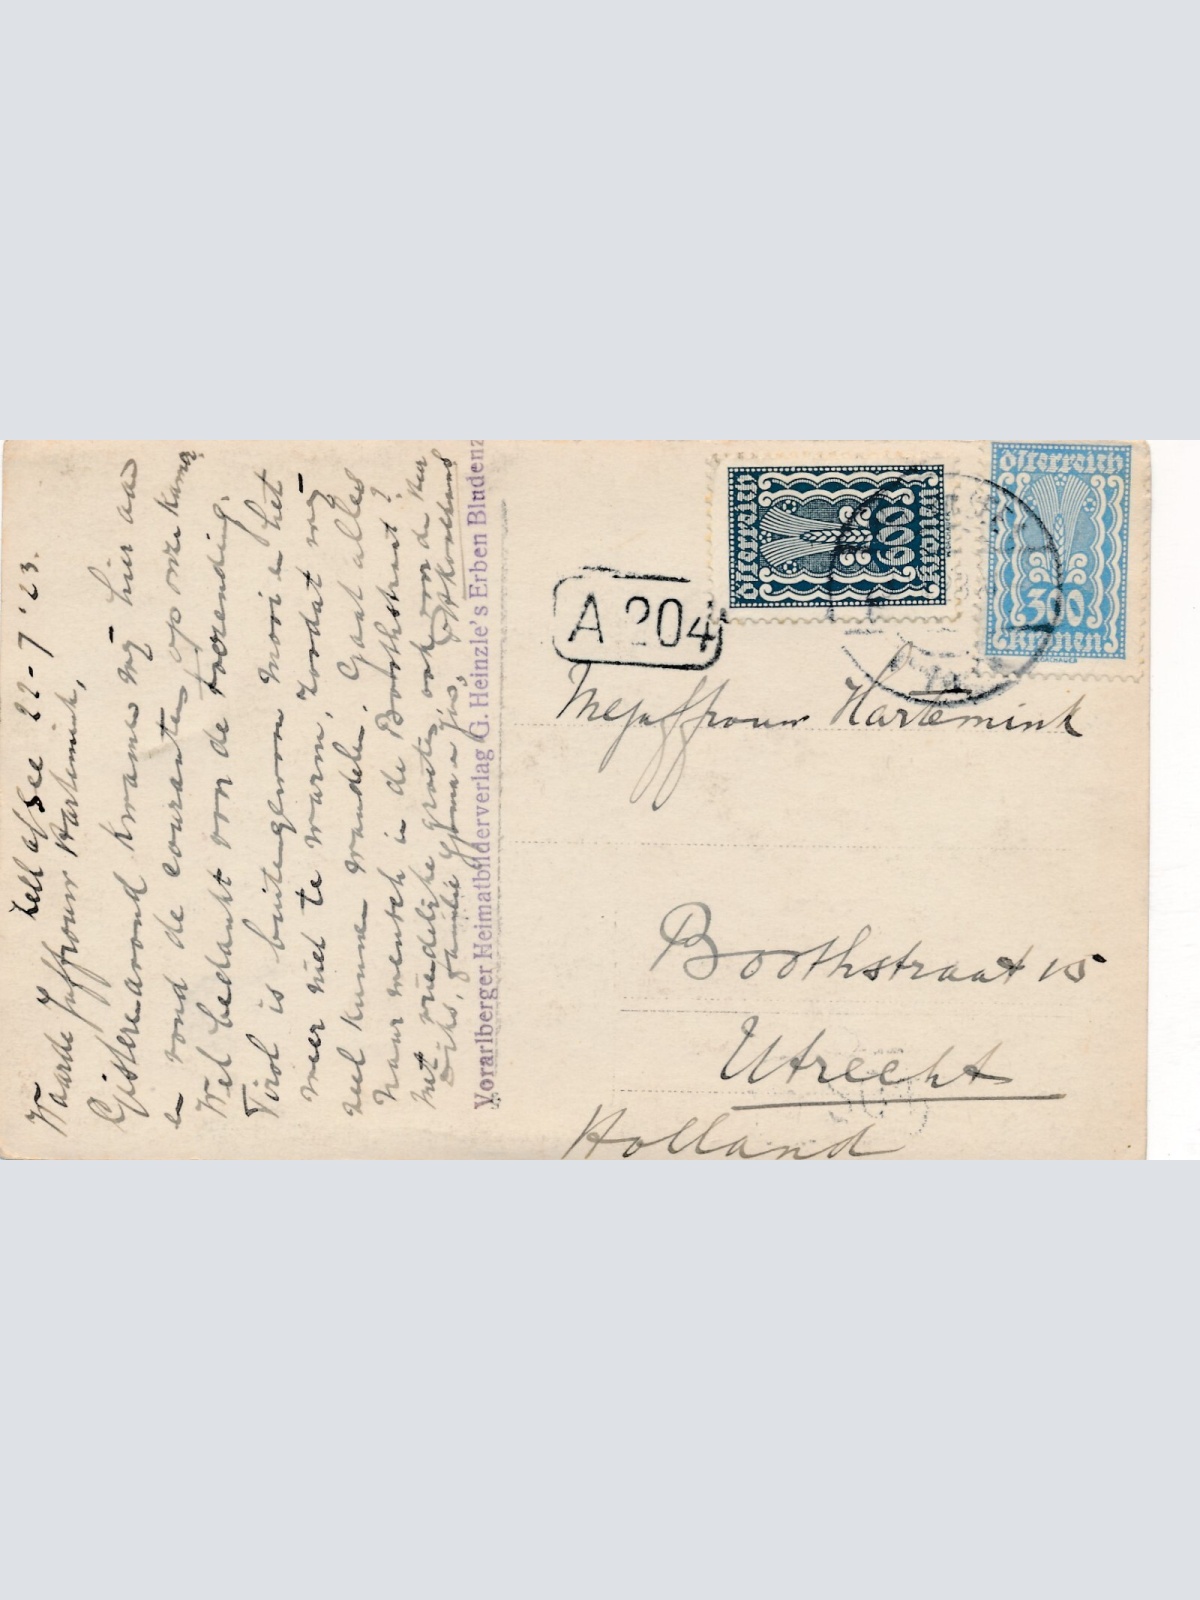 Zell a/See 22-7'23.
Waarde Juffrouw Hartemink,
Gisterenavond kwamen wij hier aan
en vond de couranten op onze kamer
Wel bedankt voor de toezending.
Tirol is buitengewoon mooi en het
weer niet te warm, zoodat wij
veel kunnen wandelen. Gaat alles
naar wensch in de Boothstraat?
Met vriendelijke groeten, ook voor de Heer
familie
Vorarlberger Heimatbilderverlag G. Heinzle's Erben Bludenz
A 204
Österreich
600
Kronen
Österreich
300
Kronen
Mejuffrouw Hartemink
Boothstraat 15
Utrecht
Holland